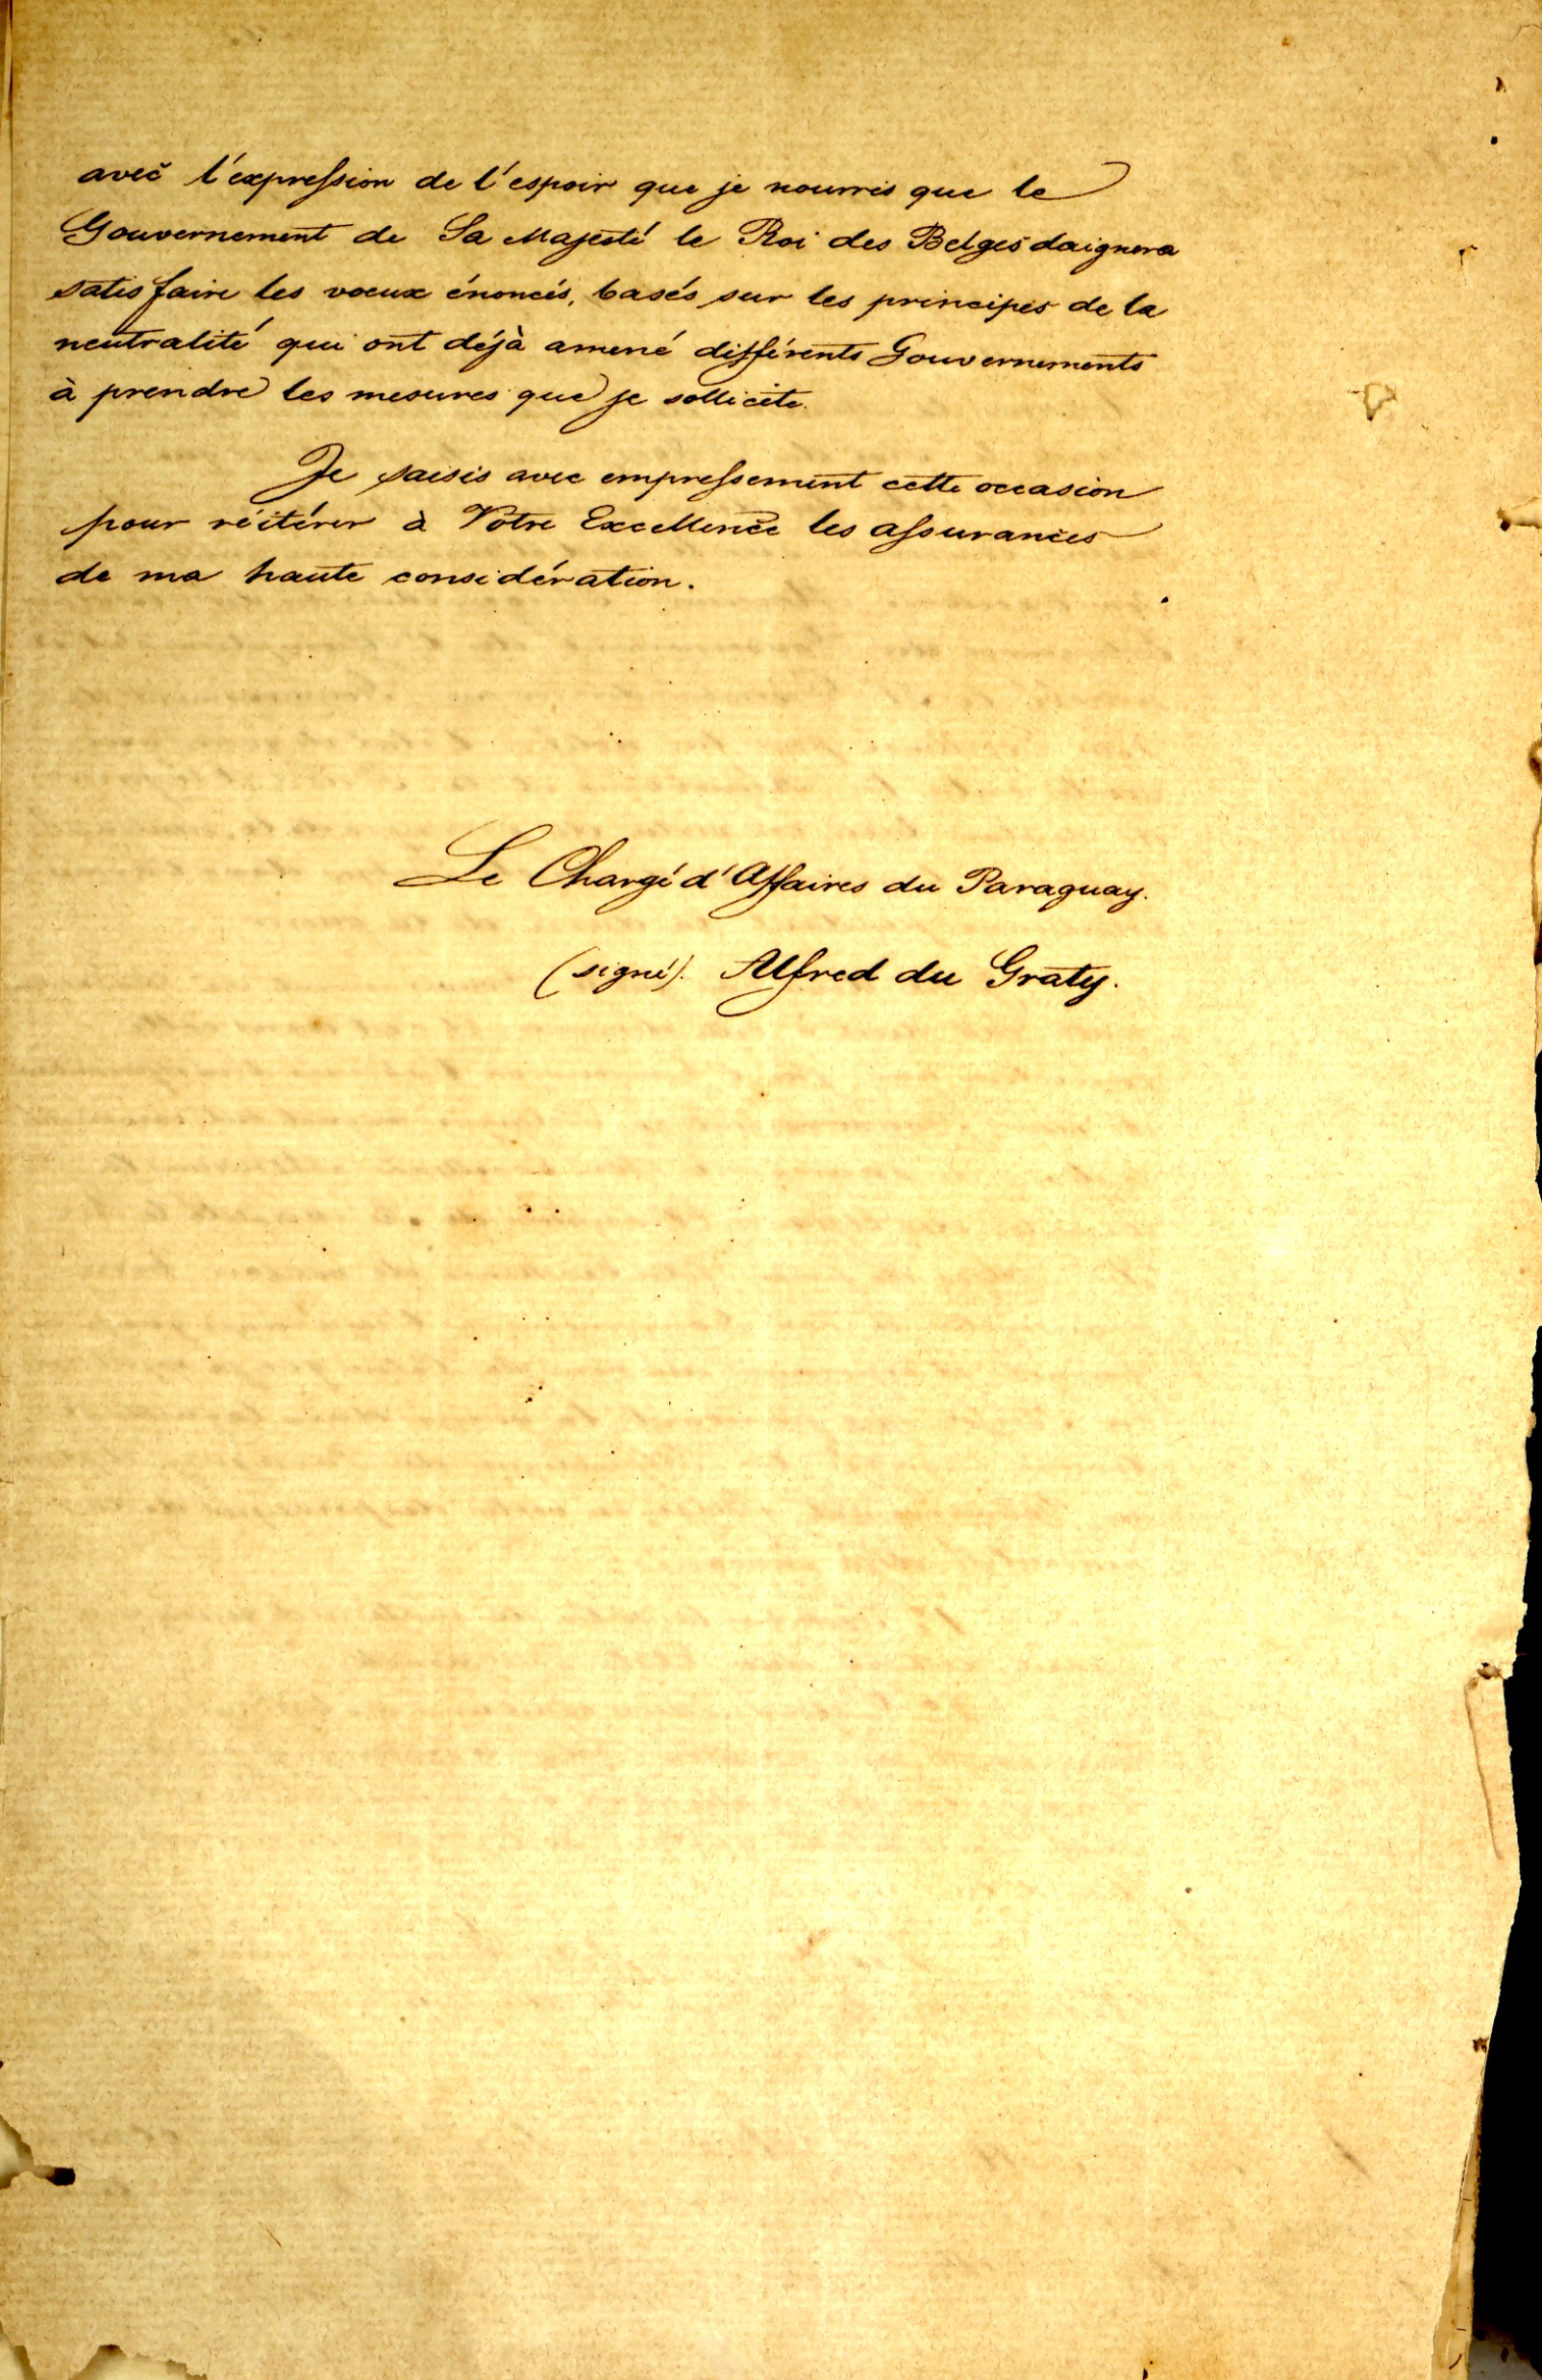 avec l'expression de l'espoir que je nourris que le
Gouvernement de Sa Majesté le Roi des Belges daignera
satisfaire les voeux énoncés, basés sur les principes de la
neutralité qui ont déjà amené différents Gouvernements
à prendre les mesures que je sollicite.
Je saisis avec empressement cette occasion
pour réitérer à Votre Excellence les assurances
de ma haute considération.
Le Chargé d'Affaires du Paraguay.
(signé). Alfred du Graty.